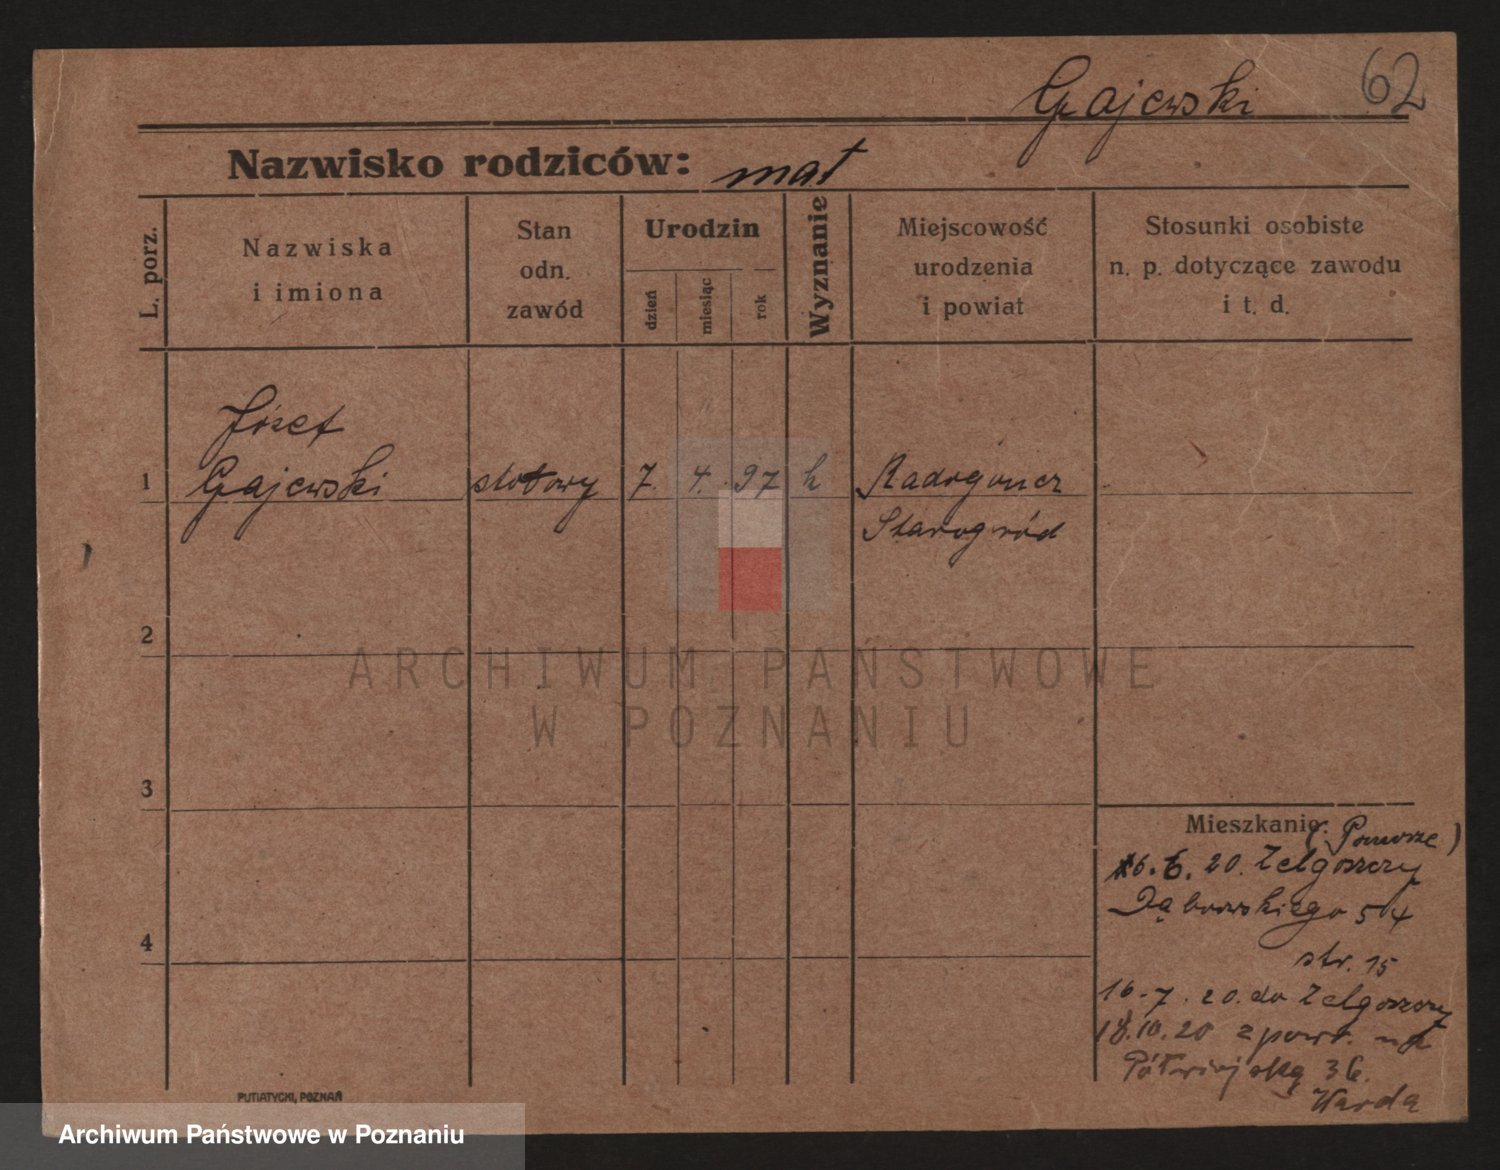 Gajewski 62
Nazwisko rodziców: mał
L. porz.
Nazwiska
i imiona
Stan
odn.
zawód
Urodzin
dzień
miesiąc
rok
Wyznanie
Miejscowość
urodzenia
i powiat
Stosunki osobiste
n. p. dotyczące zawodu
i t. d.
Józef
1 Gajewski słotowy 7. 4. 97 k Radogoncz
Starogród
2
ARCHIWUM PAŃSTWOWE
W POZNANIU
3
Mieszkanie: (Pomorze)
6. 20. Zelgoszczy
Dąbrowskiego 54
str. 15
16. 7. 20. do Zelgoszczy
4
18.10.20 z powr. na
Półwiejską 36.
Warda
PUTIATYCKI, POZNAŃ
Archiwum Państwowe w Poznaniu